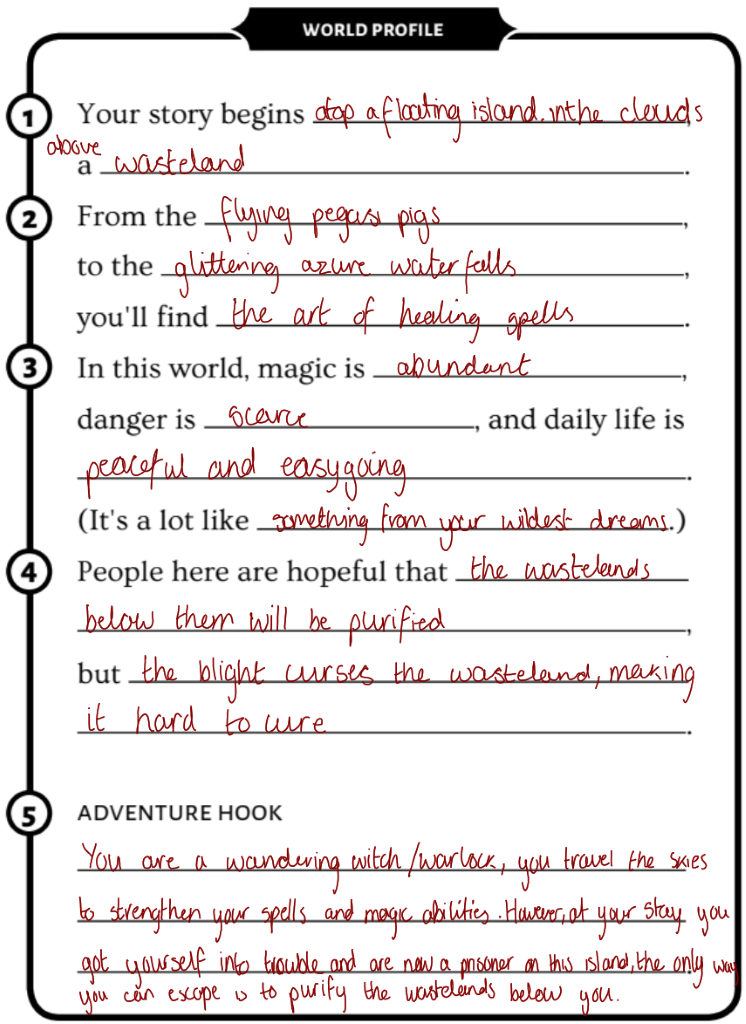 WORLD PROFILE
1 Your story begins atop a floating island. in the clouds
above
a wasteland.
2 From the flying pegasi pigs,
to the glittering azure waterfalls,
you'll find the art of healing spells.
3 In this world, magic is abundant,
danger is scarce, and daily life is
peaceful and easygoing.
(It's a lot like something from your wildest dreams.)
4 People here are hopeful that the wastelands
below them will be purified,
but the blight curses the wasteland, making
it hard to cure.
5 ADVENTURE HOOK
You are a wandering witch/warlock, you travel the skies
to strengthen your spells and magic abilities. However, at your stay you
got yourself into trouble and are now a prisoner on this island, the only way
you can escape is to purify the wastelands below you.